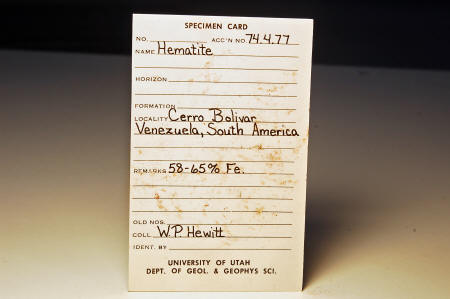 SPECIMEN CARD
NO. ACC'N NO. 74.4.77
NAME Hematite
HORIZON
FORMATION
LOCALITY Cerro Bolivar
Venezuela, South America
REMARKS 58-65% Fe.
OLD NOS.
COLL. W.P. Hewitt
IDENT. BY
UNIVERSITY OF UTAH
DEPT. OF GEOL. & GEOPHYS SCI.